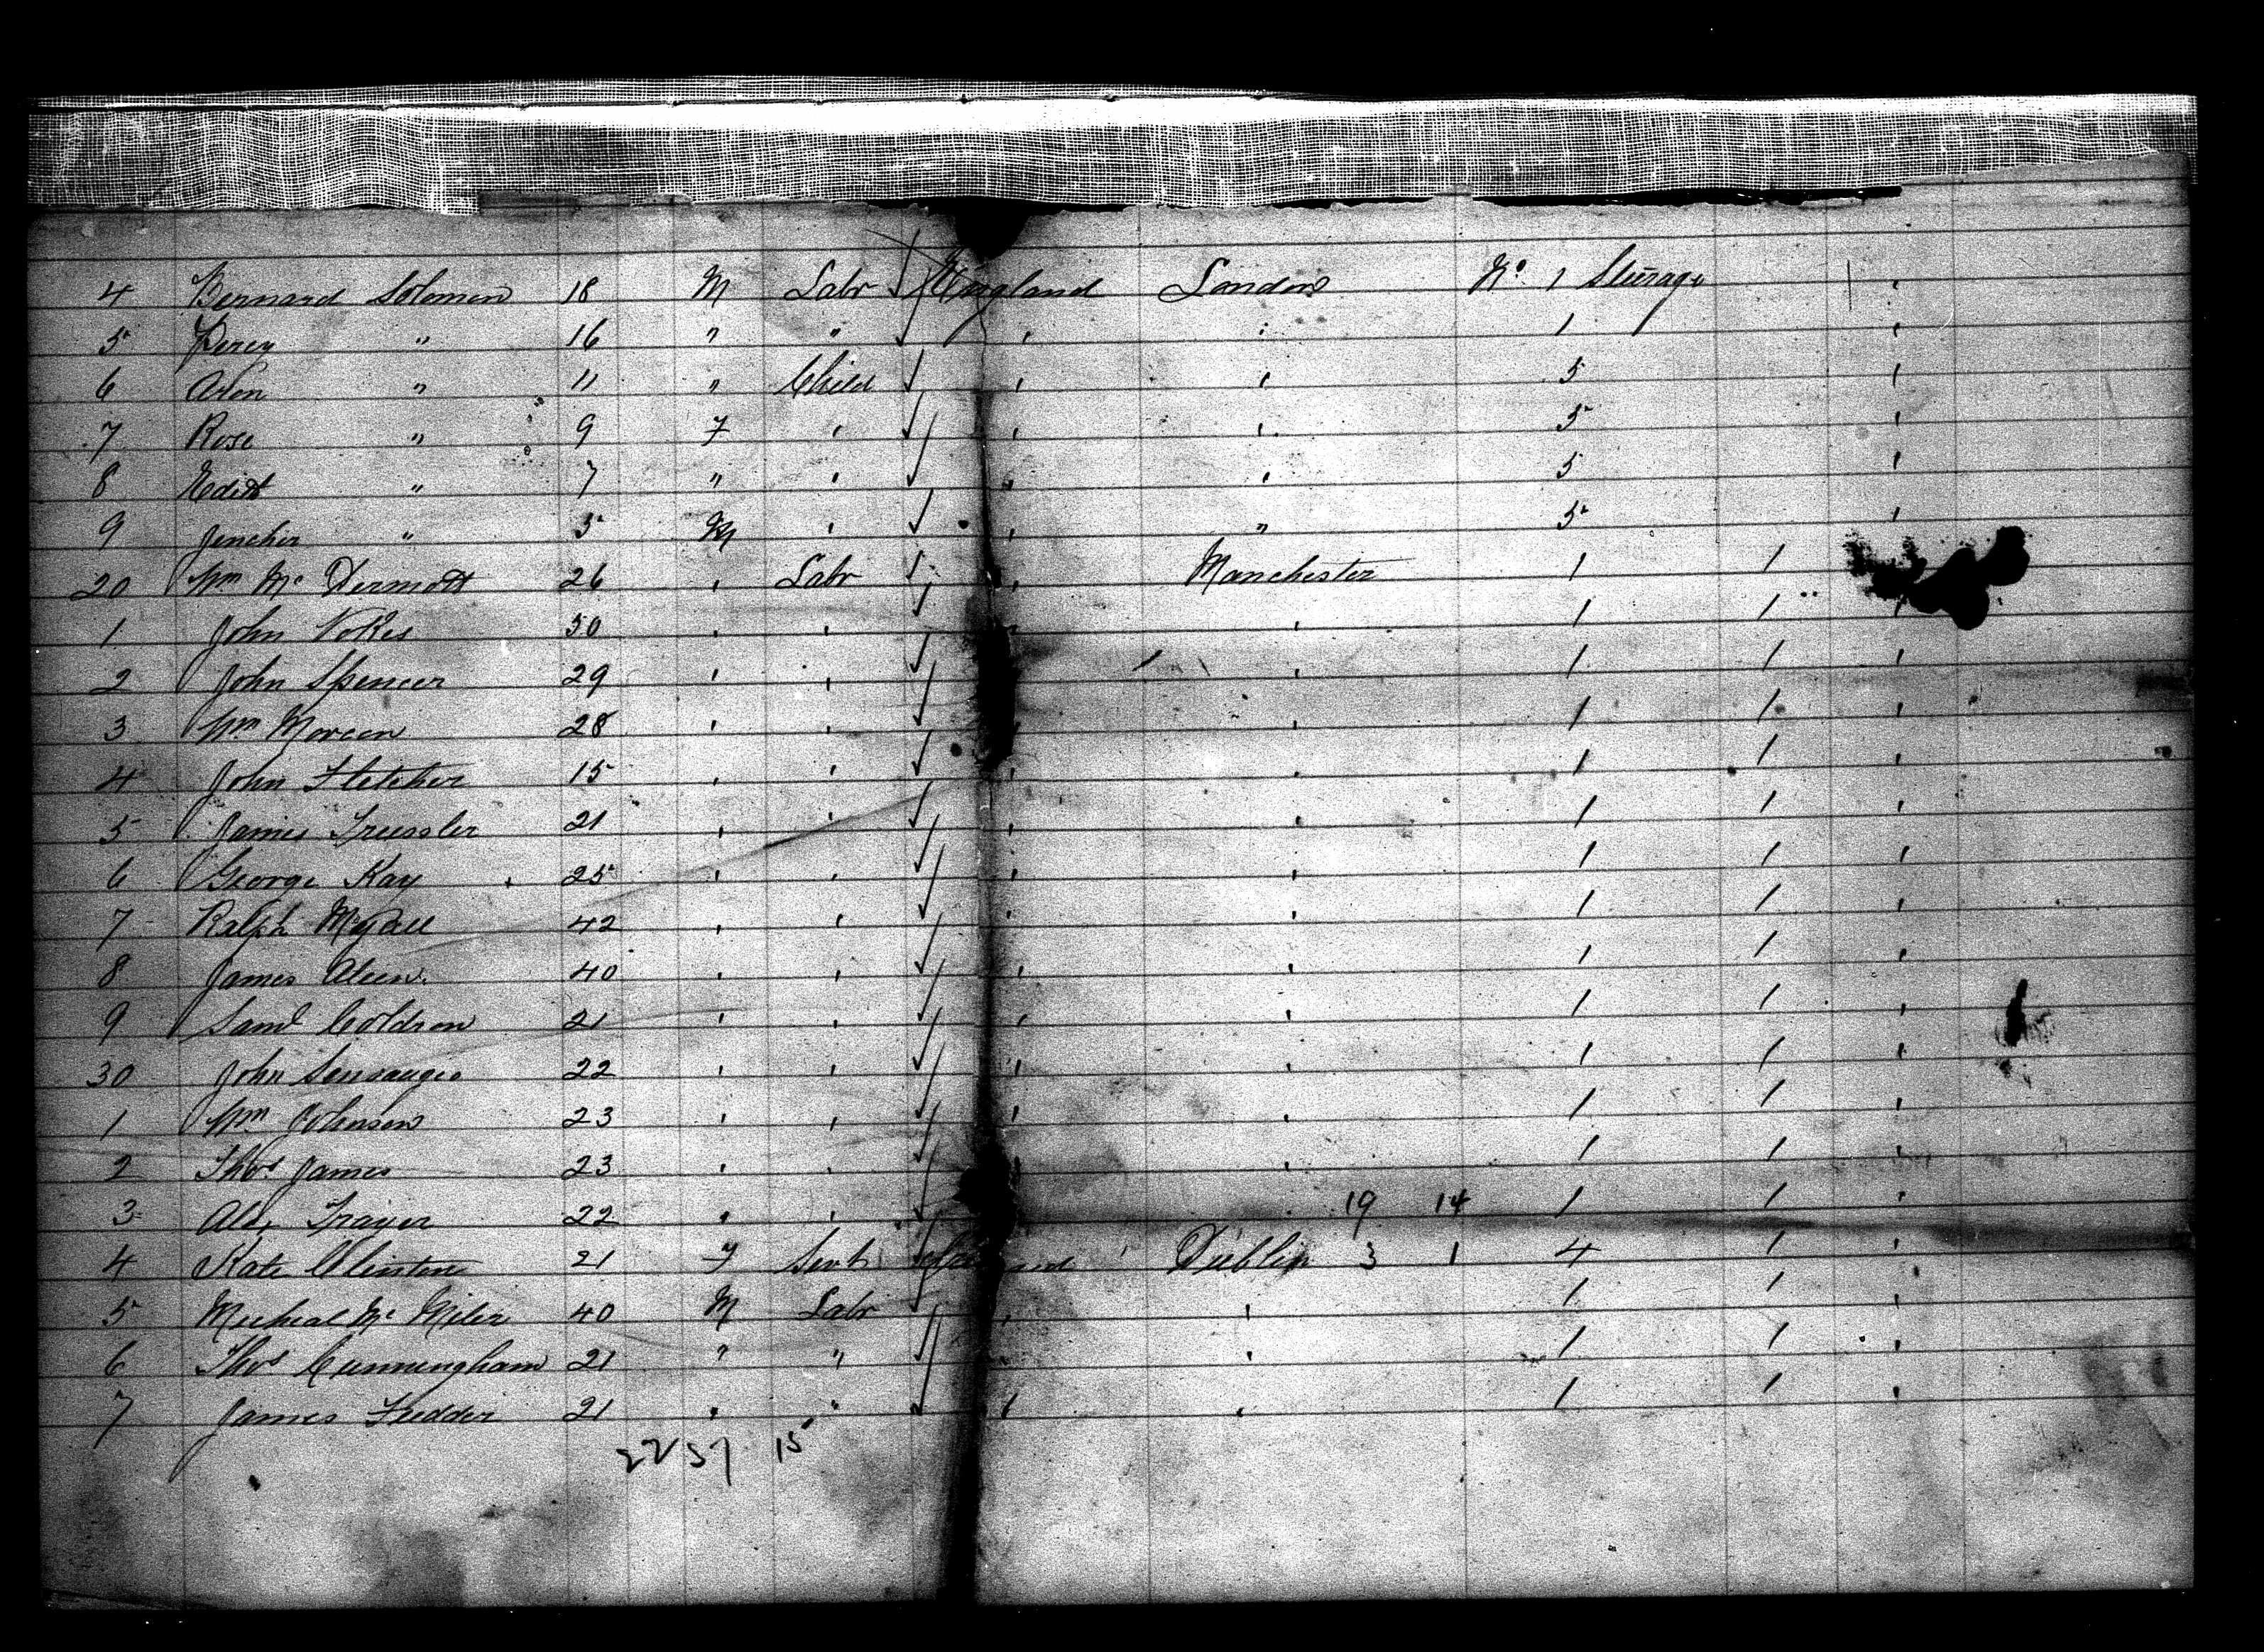 4 Bernard Solomon 18 M Labr England London No. 1 Steerage 1 '
5 Percy " 16 " " ' : 1 '
6 Aron " 11 " Child ' ' 5 '
7 Rose " 9 F ' ' ' 5 '
8 Edith " 7 " ' " ' 5 '
9 " 5 M ' ' " 5 '
20 Wm Mc Dermott 26 ' Labr ' Manchester 1 1
1 John Nokes 30 ' ' ' 1 1 '
2 John Spencer 29 ' ' ' 1 1 '
3 Wm Moreen 28 ' ' ' ' 1 1 '
4 John Fletcher 15 ' ' ' ' 1 1 '
5 James Trussler 21 ' ' ' ' 1 1 '
6 George Kay 25 ' ' ' ' 1 1 '
7 Ralph 42 ' ' ' ' 1 1 '
8 James 40 ' ' ' ' 1 1 '
9 Saml Coldron 21 ' ' ' ' 1 1 '
30 John 22 ' ' ' ' 1 1 '
1 Wm Johnson 23 ' ' ' ' 1 1 '
2 Thos James 23 ' ' ' 1 1 '
3 22 ' ' 19 14 1 1 '
4 Kate Clinton 21 F Servt Dublin 3 1 4 1 '
5 Micheal Mc Miler 40 M Labr ' ' 1 1 '
6 Thos Cunningham 21 " " ' ' 1 1 '
7 James Tedder 21 ' " ' ' 1 1 '
22 37 15